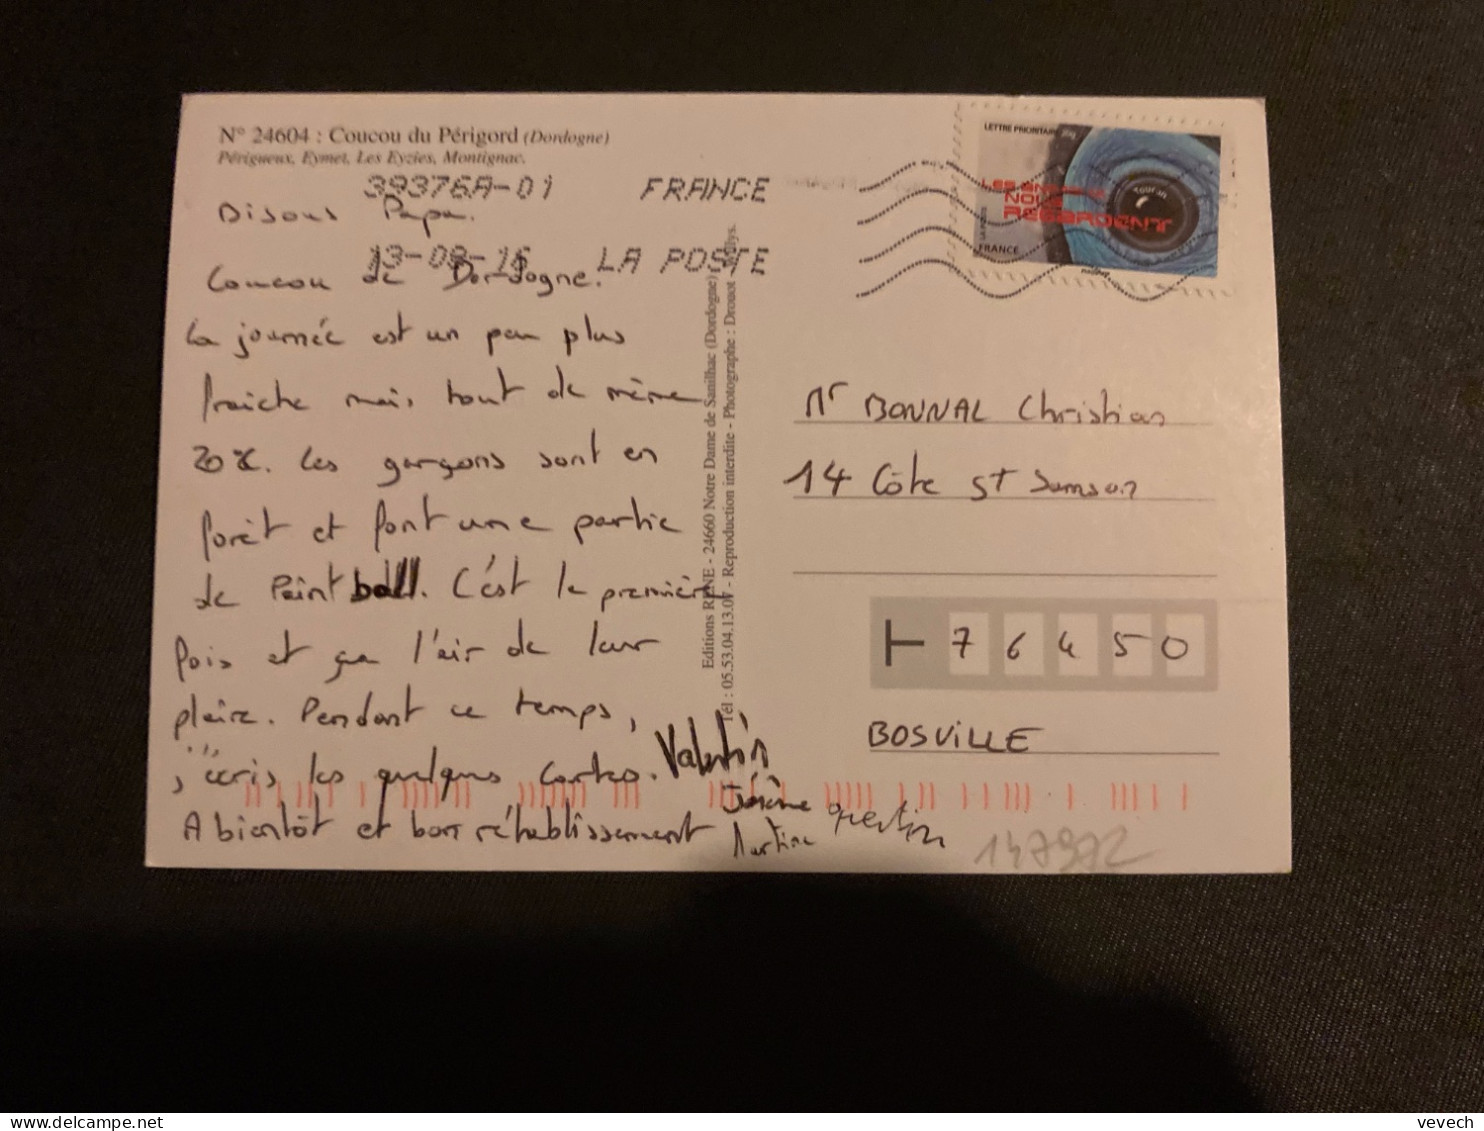 N° 24604 : Coucou du Périgord (Dordogne)
Périgueux, Eymet, Les Eyzies, Montignac.
39376A-01 FRANCE
13-08-16 LA POSTE
Bisous Papa.
Coucou de Dordogne.
La journée est un peu plus
fraiche mais tout de même
20°C. Les garçons sont en
forêt et font une partie
de Paintball. C'est la première
fois et ça l'air de leur
plaire. Pendant ce temps,
j'écris les quelques cartes.
A bientôt et bon rétablissement
Valentin
Jérôme
Quentin
Martine
Editions RENE - 24660 Notre Dame de Sanilhac (Dordogne)
Tél : 05.53.04.13.07 - Reproduction interdite - Photographe : Drouot Willys.
LETTRE PRIORITAIRE 20g
LES ANIMAUX
NOUS
REGARDENT
Toucan
LA POSTE
FRANCE
Mr BONNAL Christian
14 Côte St Samson
76450
BOSVILLE
147972
vevech